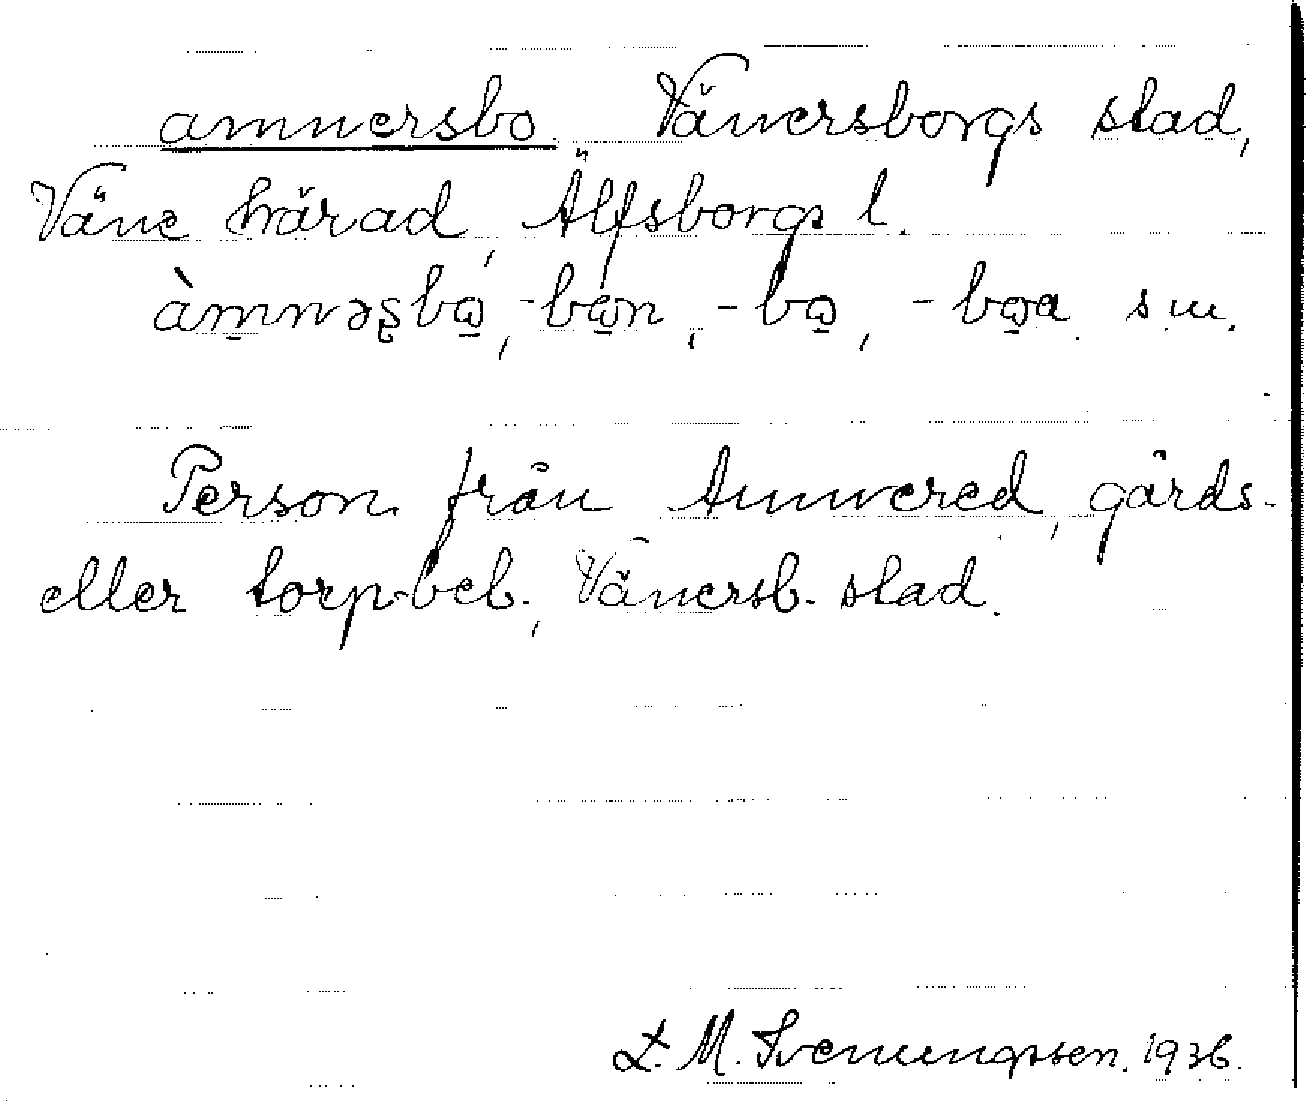 amnersbo. Vänersborgs stad,
Väne härad, Älfsborgs l.
s m.
Person från Amnered, gårds-
eller torp-beb., Vänersb. stad.
L. M. Svenungsson. 1936.